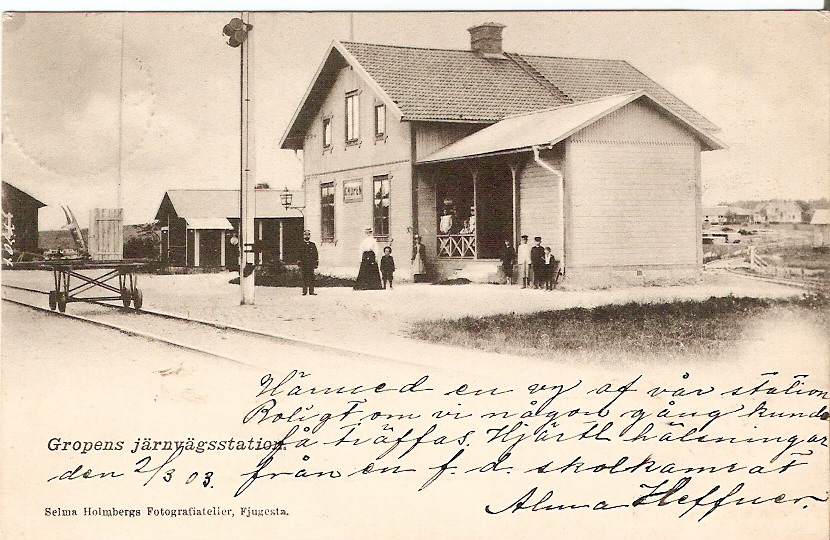 GROPEN
Härmed en vy af vår station
Roligt om vi någon gång kunde
få träffas. Hjärtl hälsningar
Gropens järnvägsstation.
den 2/3 03. från en f. d. skolkamrat
Alma Heffner.
Selma Holmbergs Fotografiatelier, Fjugesta.